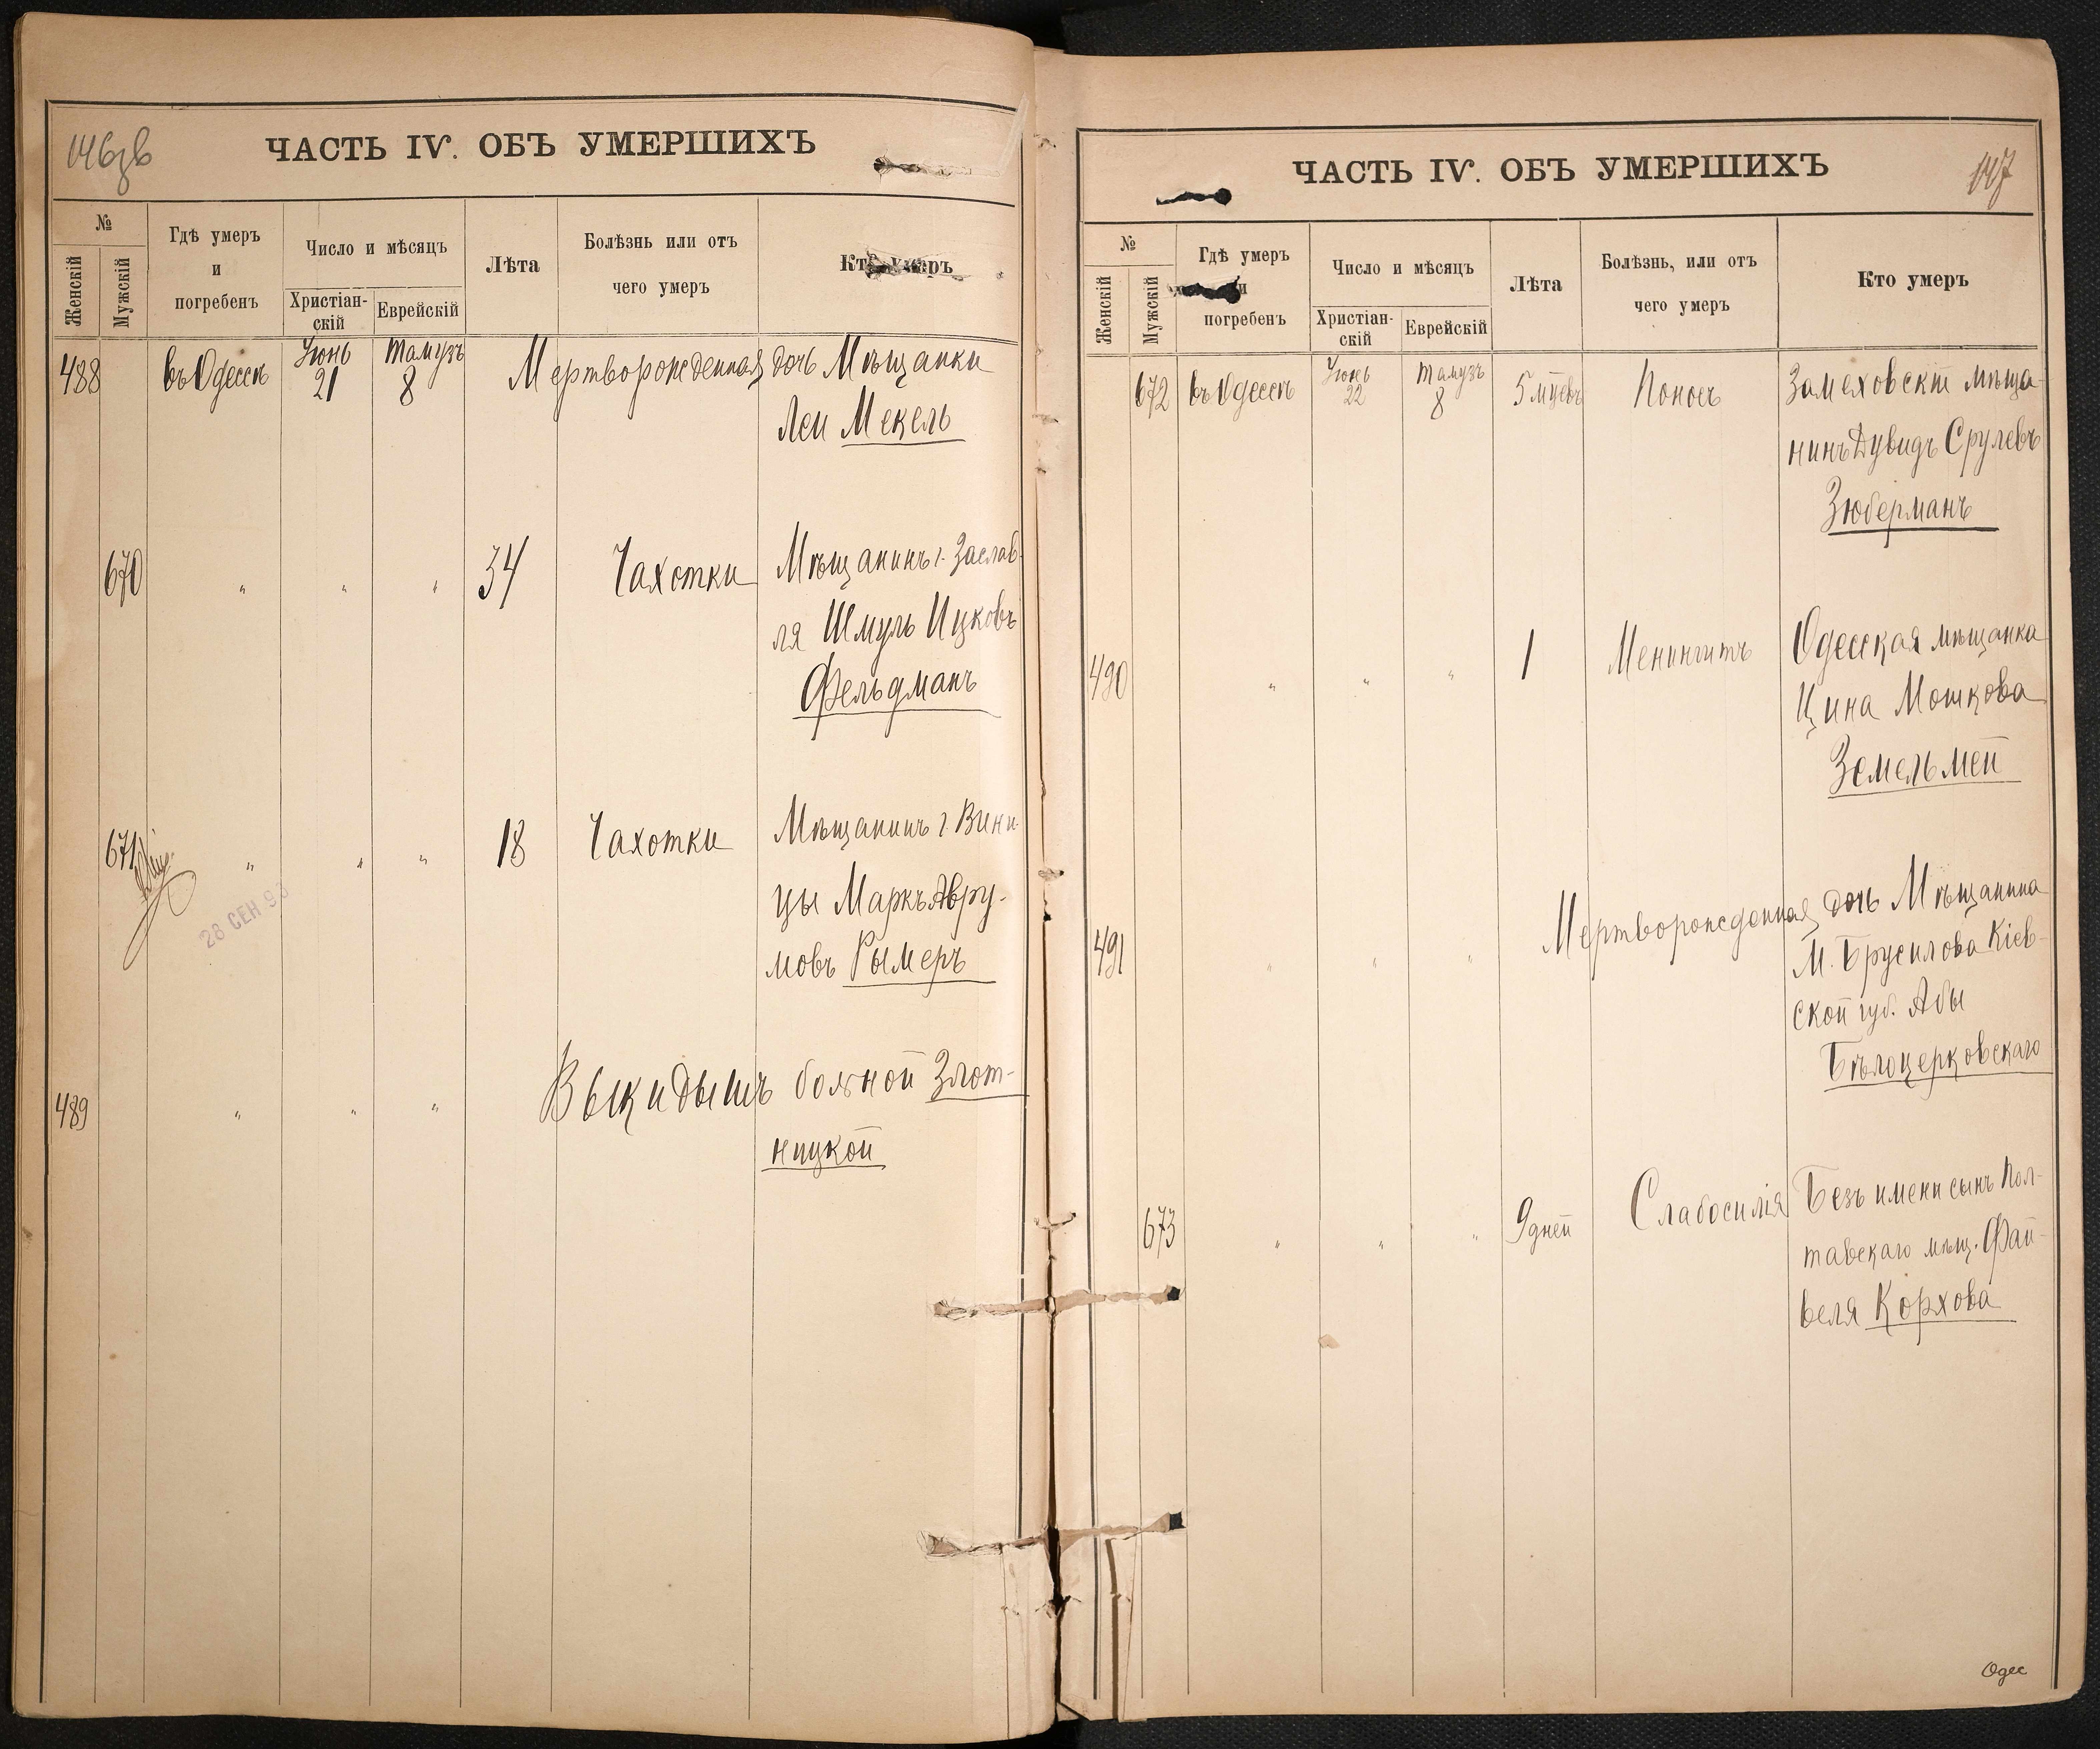 146об
ЧАСТЬ IV. ОБЪ УМЕРШИХЪ
№
Женскій
Мужскій
Гдѣ умеръ
и
погребенъ
Число и мѣсяцъ
Христіан-
скій
Еврейскій
Лѣта
Болѣзнь или отъ
чего умеръ
Кто умеръ
488 въ Одессѣ Іюнь 21 Тамузъ 8 Мертворожденная дочь Мѣщанки
Леи Мекель
670 " " " 34 Чахотки Мѣщанинъ г. Заслав-
ля Шмуль Ицковъ
Фельдманъ
671 " " " 18 Чахотки Мѣщанинъ г. Вини-
цы Маркъ Авру-
мовъ Рымеръ
28 СЕН 93
489 " " " Выкидышъ больной Злот-
ницкой
147
ЧАСТЬ IV. ОБЪ УМЕРШИХЪ
№
Женскій
Мужскій
Гдѣ умеръ
и
погребенъ
Число и мѣсяцъ
Христіан-
скій
Еврейскій
Лѣта
Болѣзнь, или отъ
чего умеръ
Кто умеръ
672 въ Одессѣ Іюнь 22 Тамузъ 8 5 мцевъ Поносъ Замеховскій мѣща-
нинъ Дувидъ Срулевъ
Зюберманъ
490 " " " 1 Менингитъ Одесская мѣщанка
Цина Мошкова
Земельмей
491 " " " Мертворожденная дочь Мѣщанина
М. Брусилова Кіев-
ской губ. Абы
Бѣлоцерковскаго
673 " " " 9 дней Слабосилія Безъ имени сынъ Пол-
тавскаго мѣщ. Фай-
веля Корхова
Одес